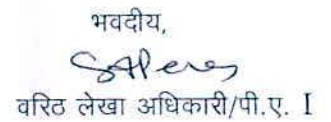 भवदीय,
वरिठ लेखा अधिकारी/पी.ए. I